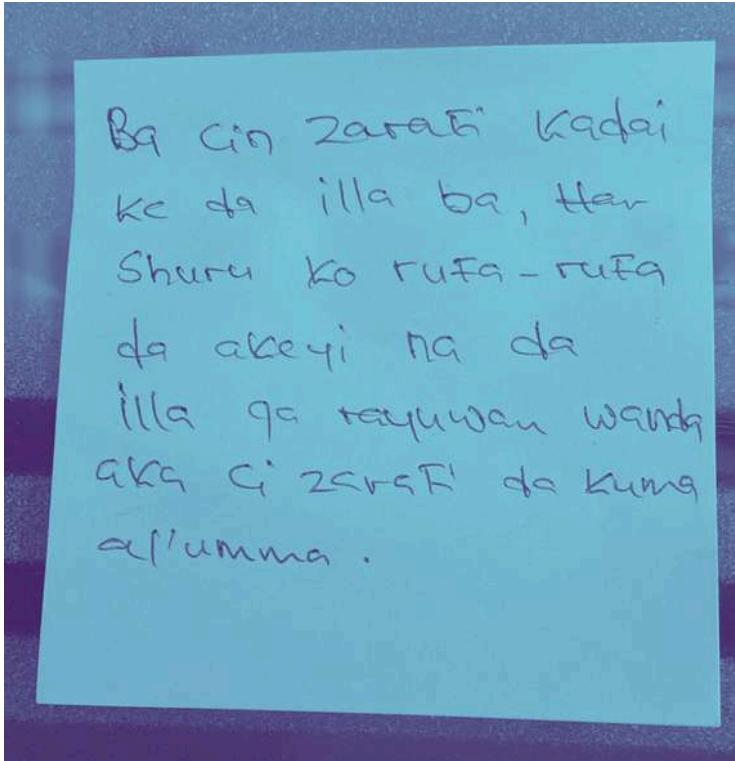 Ba cin zarafi kadai
ke da illa ba, Har
Shuru ko rufa-rufa
da akeyi na da
illa ga rayuwan wanda
aka ci zarafi da kuma
al'umma.